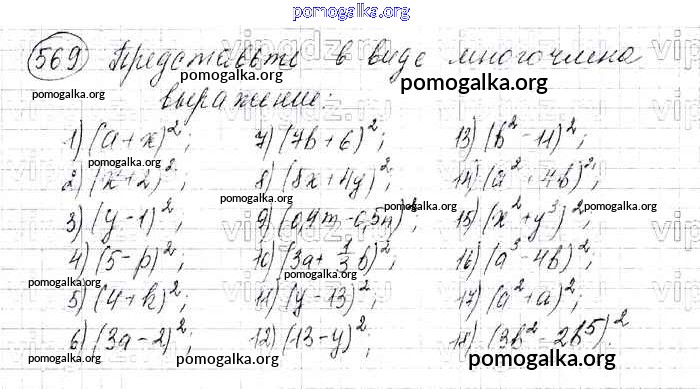 pomogalka.org
569 Представьте в виде многочлена
выражение:
1) (a+x)²; 7) (7b+6)²; 13) (b²-11)²;
2) (x+2)²; 8) (8x+4y)²; 14) (a²-4b)²;
3) (y-1)²; 9) (0,4m-0,5n)²; 15) (x²+y³)²;
4) (5-p)²; 10) (3a+1/3b)²; 16) (a³-4b)²;
5) (4+k)²; 11) (y-13)²; 17) (a²+a)²;
6) (3a-2)²; 12) (-13-y)²; 18) (3b²-2b⁵)².
pomogalka.org
pomogalka.org
pomogalka.org
pomogalka.org
pomogalka.org
pomogalka.org
pomogalka.org
pomogalka.org
pomogalka.org
pomogalka.org
pomogalka.org
pomogalka.org